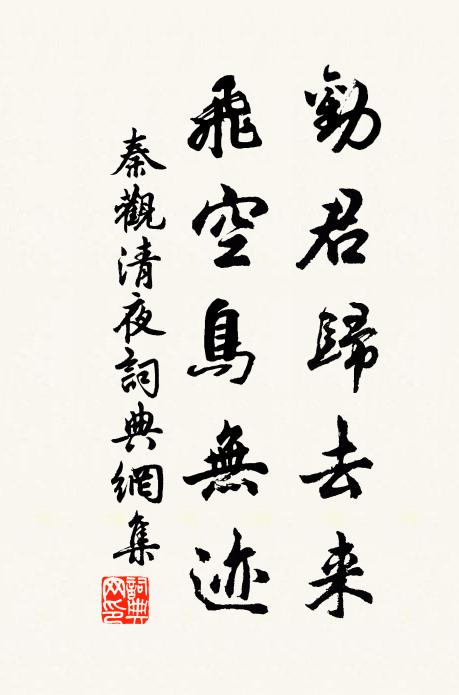 勸君歸去来
飛空鳥無迹
秦觀清夜詞典網集
詞典網印